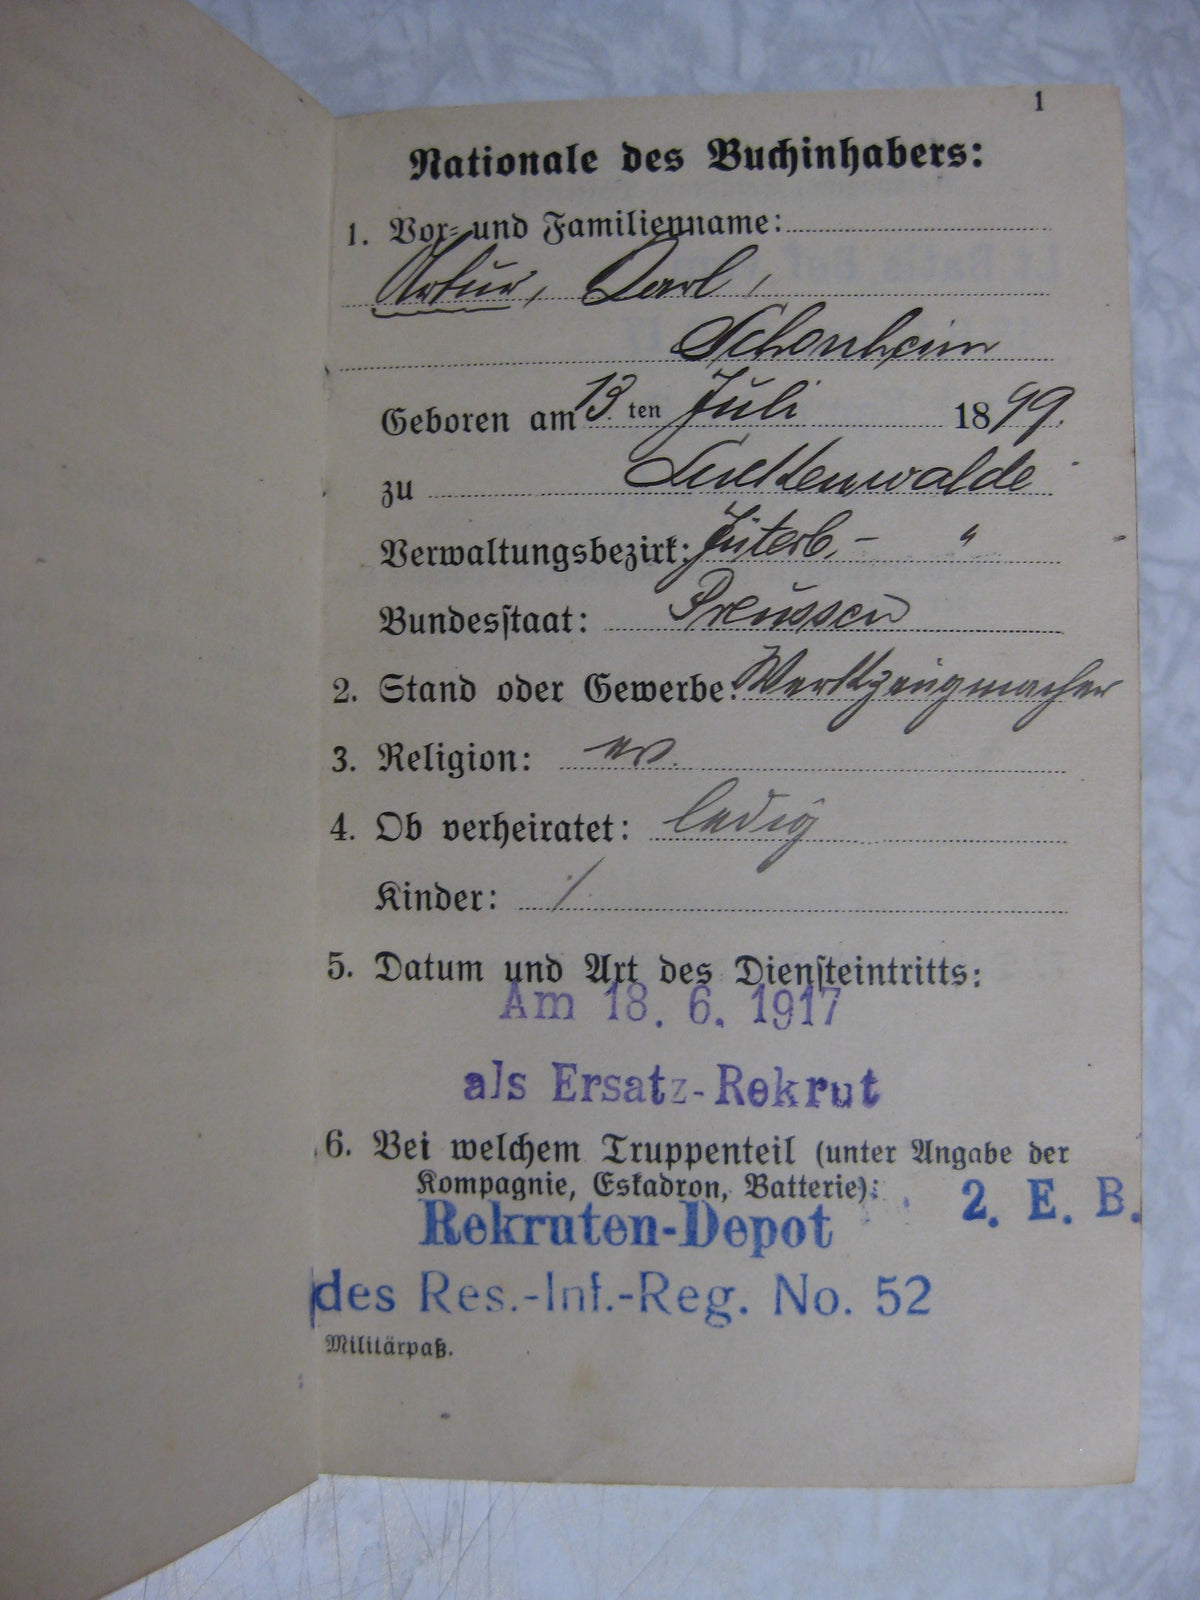 1
Nationale des Buchinhabers:
1. Vor- und Familienname:
Artur, Carl,
Schonheim
Geboren am 13. ten Juli 1899.
zu Luckenwalde
Verwaltungsbezirk: Jüterb. - "
Bundesstaat: Preussen
2. Stand oder Gewerbe: Werkzeugmacher
3. Religion: ev.
4. Ob verheiratet: ledig
Kinder: /
5. Datum und Art des Diensteintritts:
Am 18. 6. 1917
als Ersatz-Rekrut
6. Bei welchem Truppenteil (unter Angabe der
Kompagnie, Eskadron, Batterie): 2. E. B.
Rekruten-Depot
des Res.-Inf.-Reg. No. 52
Militärpaß.